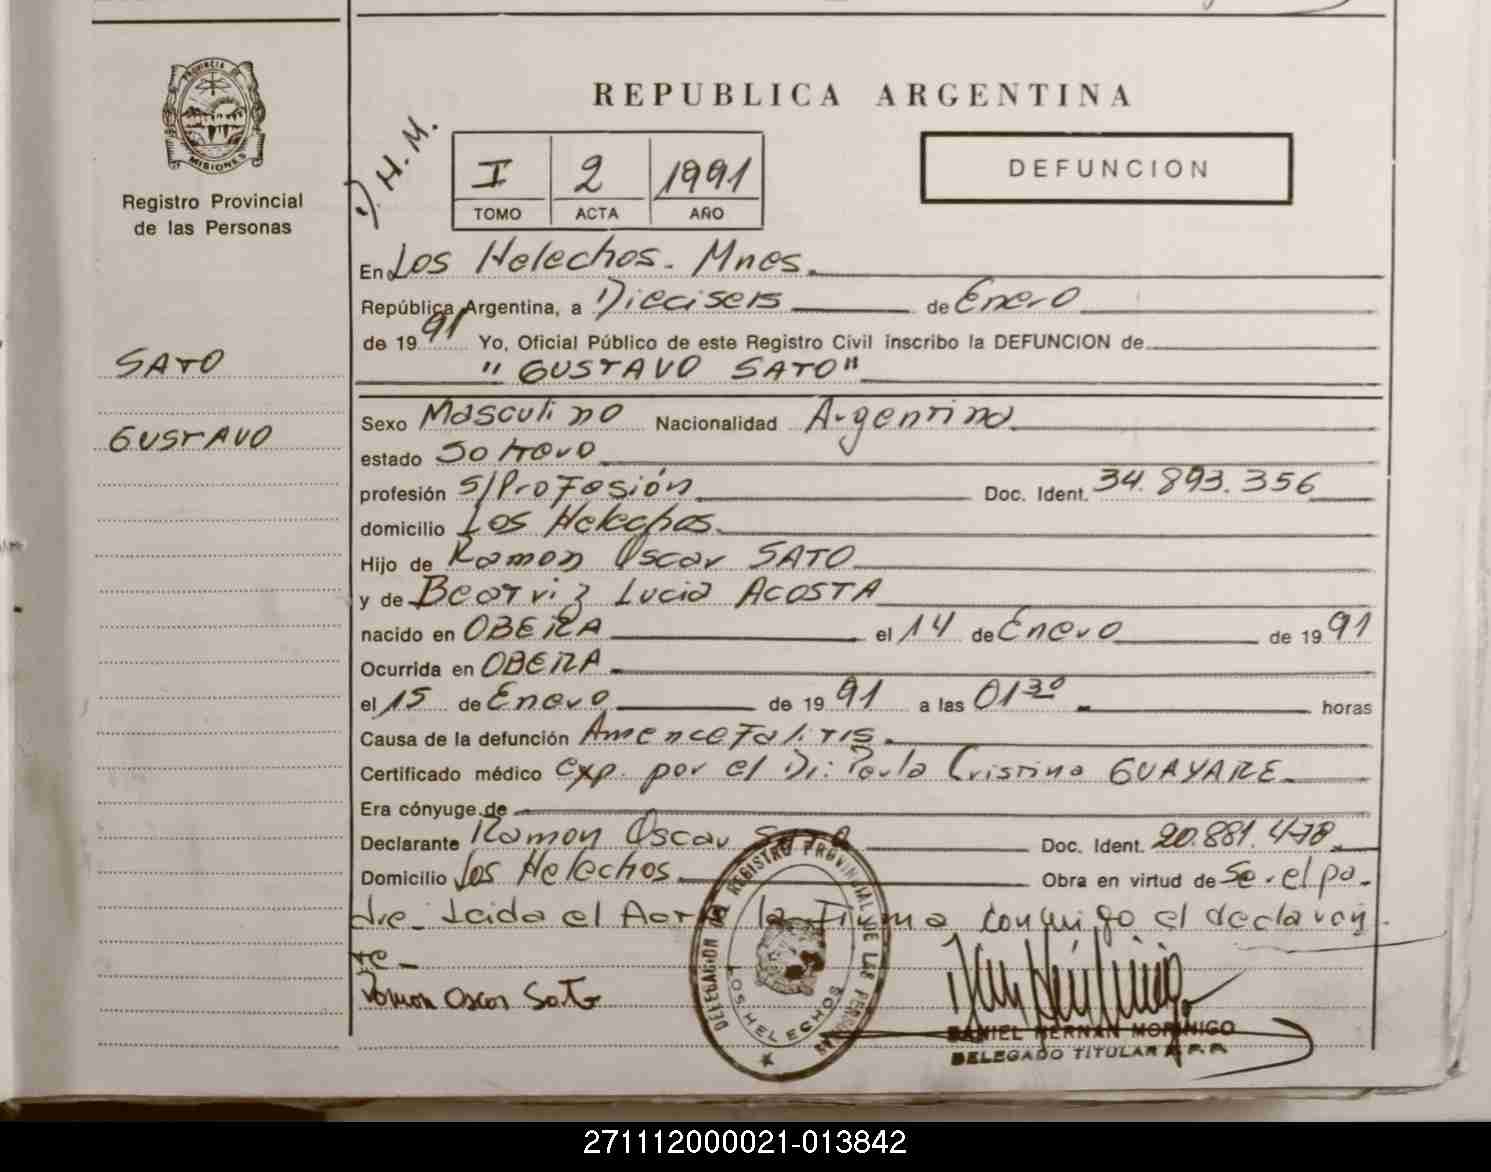 PROVINCIA DE
MISIONES
Registro Provincial
de las Personas
SATO
GUSTAVO
REPUBLICA ARGENTINA
D. H. M.
I 2 1991
TOMO ACTA AÑO
DEFUNCION
En Los Helechos. Mnes.
República Argentina, a Dieciseis de Enero
de 1991 Yo, Oficial Público de este Registro Civil inscribo la DEFUNCION de
"GUSTAVO SATO"
Sexo Masculino Nacionalidad Argentina
estado Soltero
profesión S/Profesión Doc. Ident. 34.893.356
domicilio Los Helechos.
Hijo de Ramon Oscar SATO
y de Beatriz Lucia ACOSTA
nacido en OBERA el 14 de Enero de 1991
Ocurrida en OBERA
el 15 de Enero de 1991 a las 01 30 horas
Causa de la defunción Amencefalitis.
Certificado médico exp. por el Dr: Paula Cristina GUAYARE
Era cónyuge de
Declarante Ramon Oscar Sato Doc. Ident. 20.881.478
Domicilio Los Helechos Obra en virtud de Ser el pa-
dre Leida el Acta la Firma conmigo el declaran-
te
Ramon Oscar Sato
DELEGACION DEL REGISTRO PROVINCIAL DE LAS PERSONAS
LOS HELECHOS
DANIEL HERNAN MORINIGO
DELEGADO TITULAR R.P.P.
271112000021-013842